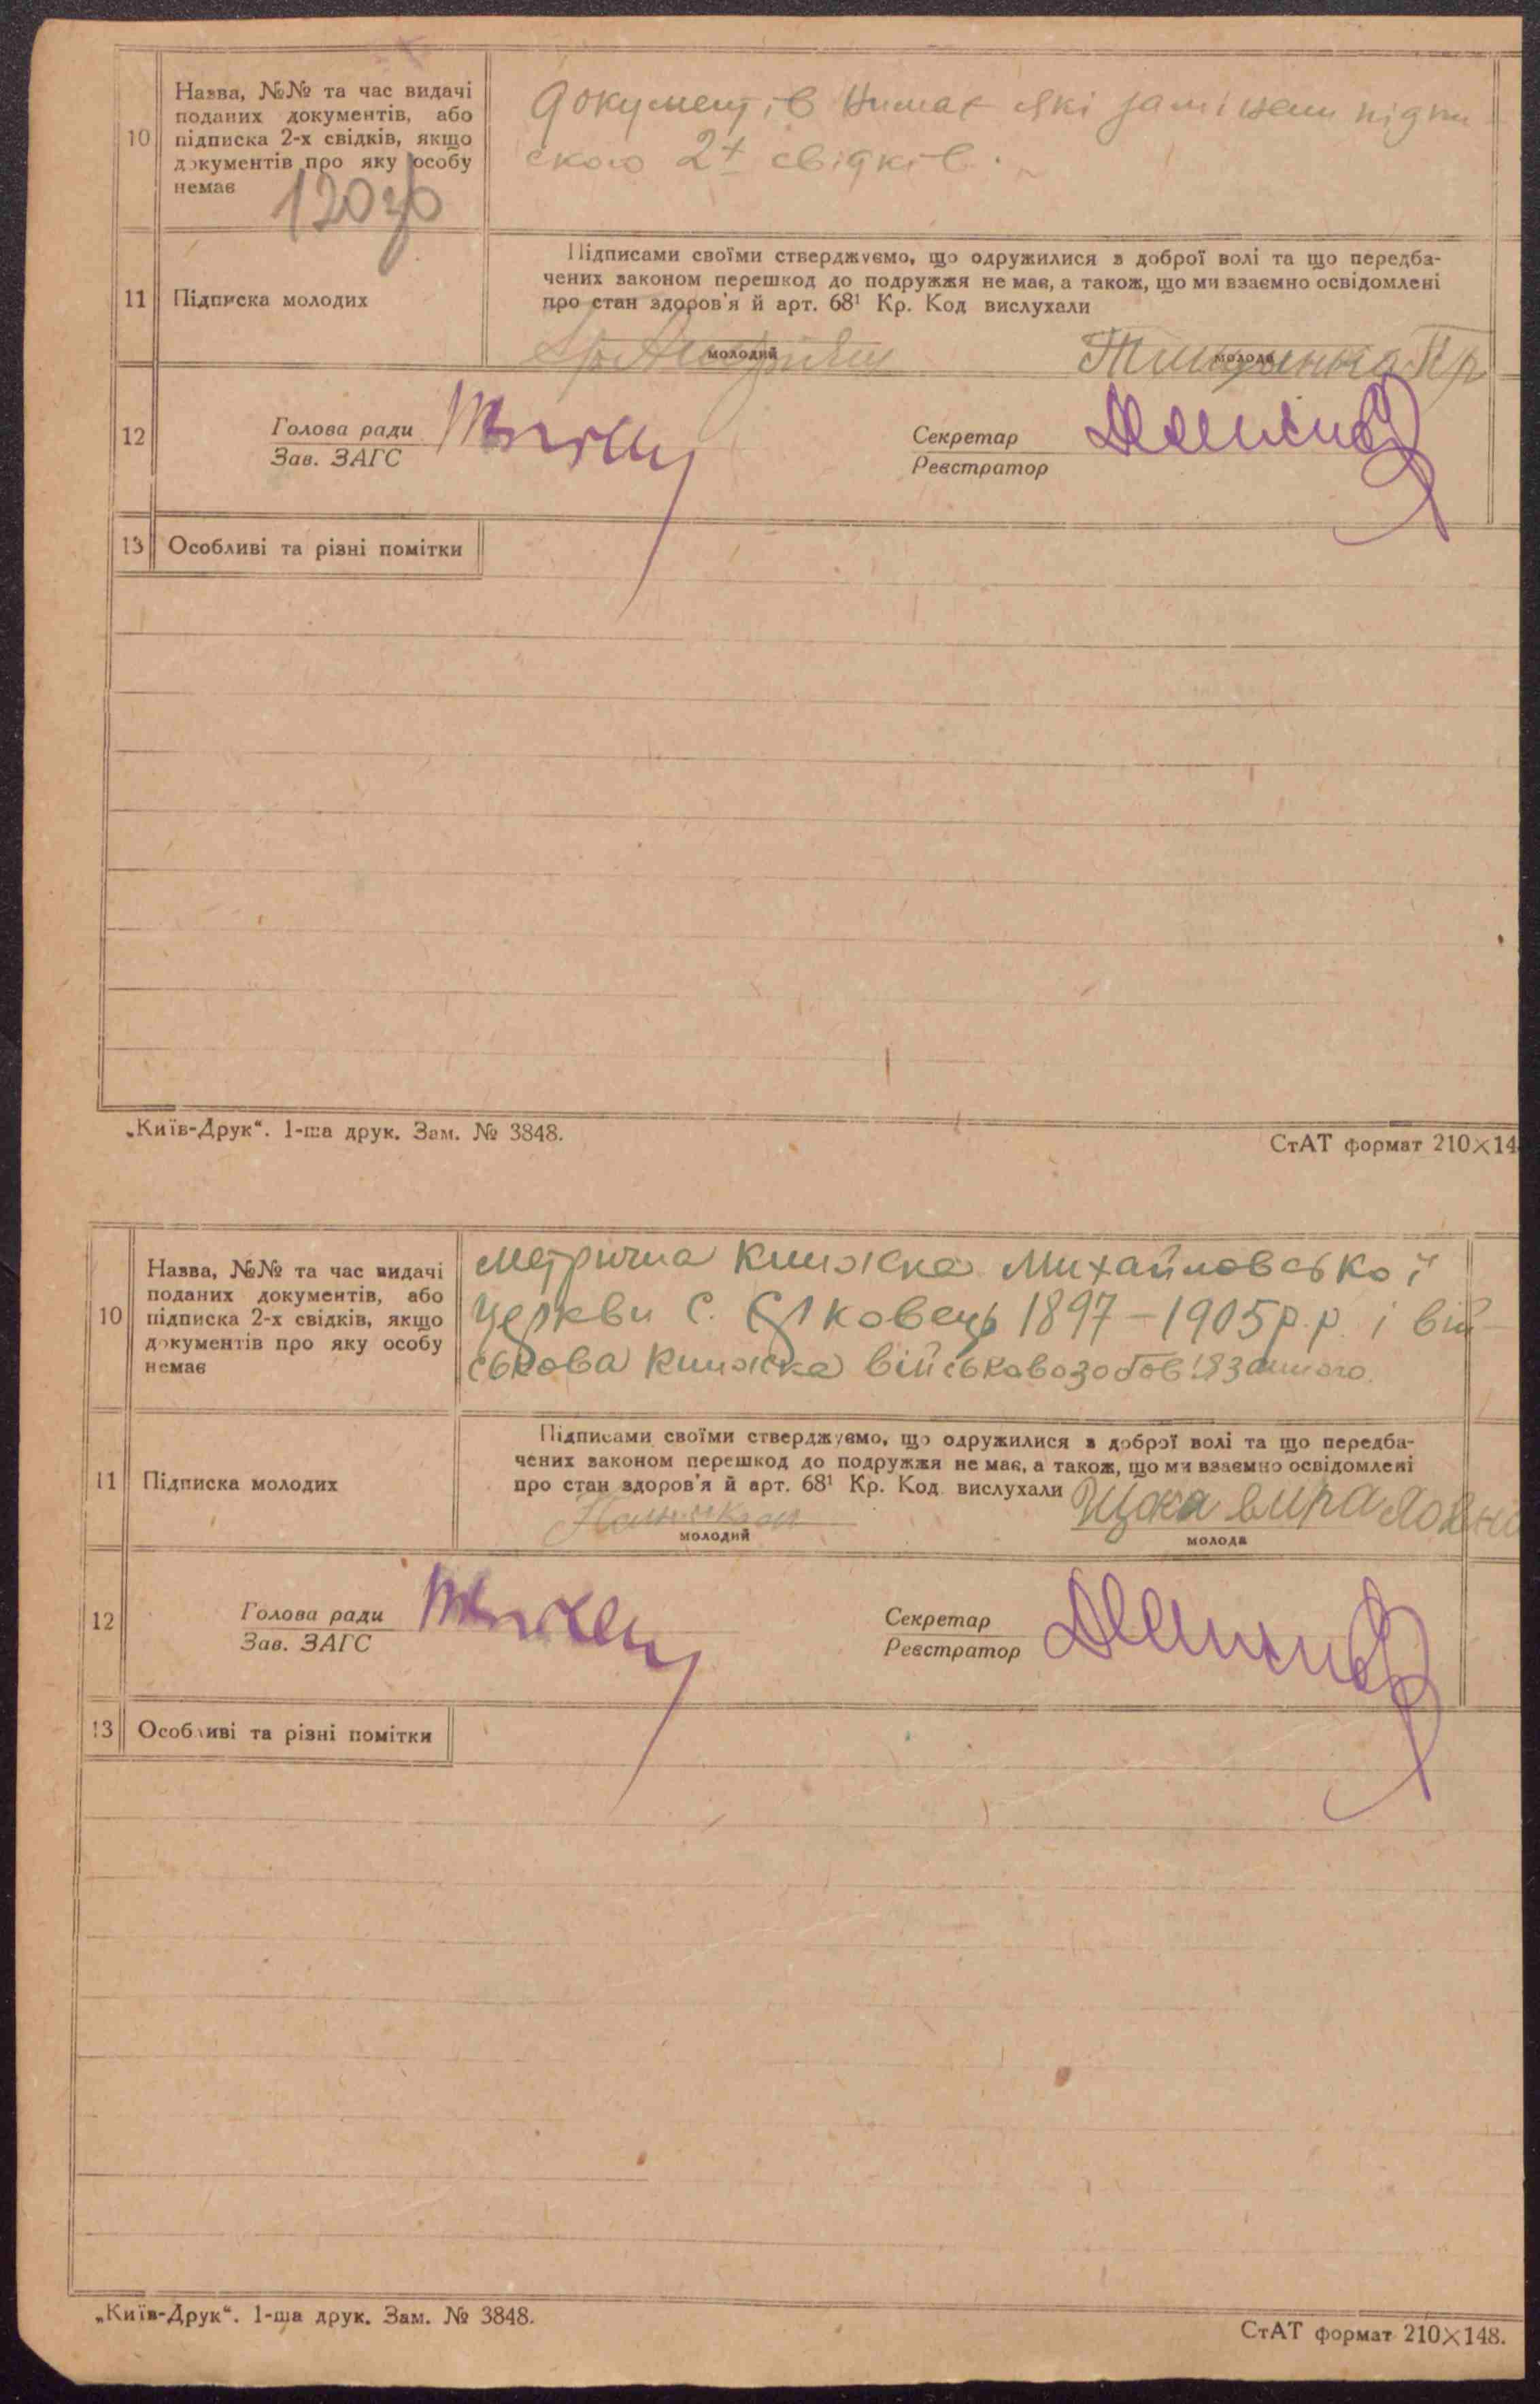 10 Назва, №№ та час видачі поданих документів, або підписка 2-х свідків, якщо документів про яку особу немає
Документів Нимає які замінени підпи
скою 2х свідків.
11 Підписка молодих
Підписами своїми стверджуємо, що одружилися з доброї волі та що передба-
чених законом перешкод до подружжя не має, а також, що ми взаємно освідомлені
про стан здоров'я й арт. 68¹ Кр. Код вислухали
молодий молода
12 Голова ради Секретар
Зав. ЗАГС Реєстратор
13 Особливі та різні помітки
„Київ-Друк“. 1-ша друк. Зам. № 3848. СтАТ формат 210×14
10 Назва, №№ та час видачі поданих документів, або підписка 2-х свідків, якщо документів про яку особу немає
Метрична книжка Михайловської
церкви с. 1897–1905 р.р. і вій-
ськова книжка
11 Підписка молодих
Підписами своїми стверджуємо, що одружилися з доброї волі та що передба-
чених законом перешкод до подружжя не має, а також, що ми взаємно освідомлені
про стан здоров'я й арт. 68¹ Кр. Код вислухали
молодий молода
12 Голова ради Секретар
Зав. ЗАГС Реєстратор
13 Особливі та різні помітки
„Київ-Друк“. 1-ша друк. Зам. № 3848. СтАТ формат 210×148.